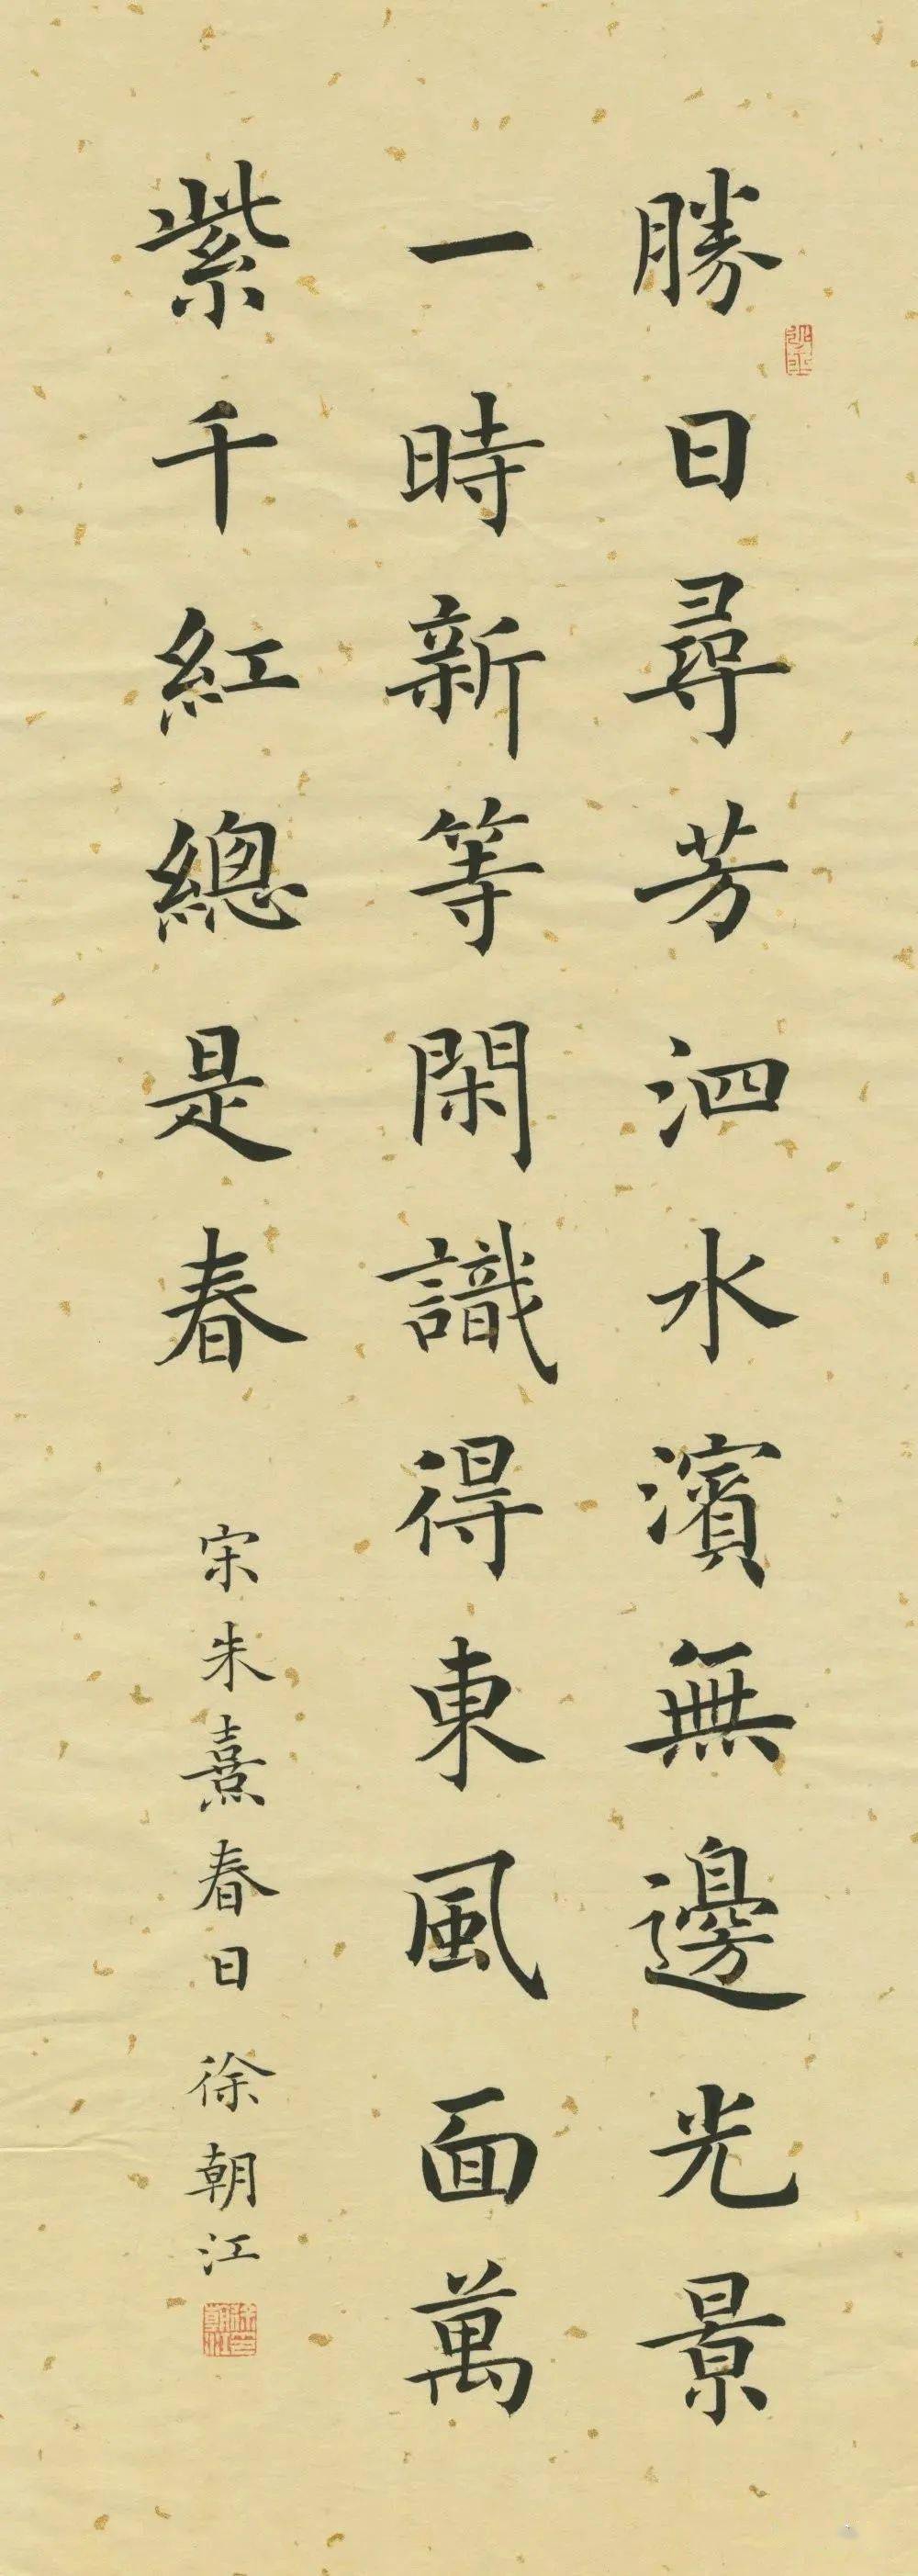 勝日尋芳泗水濱無邊光景
一時新等閑識得東風面萬
紫千紅總是春
宋朱熹春日 徐朝江